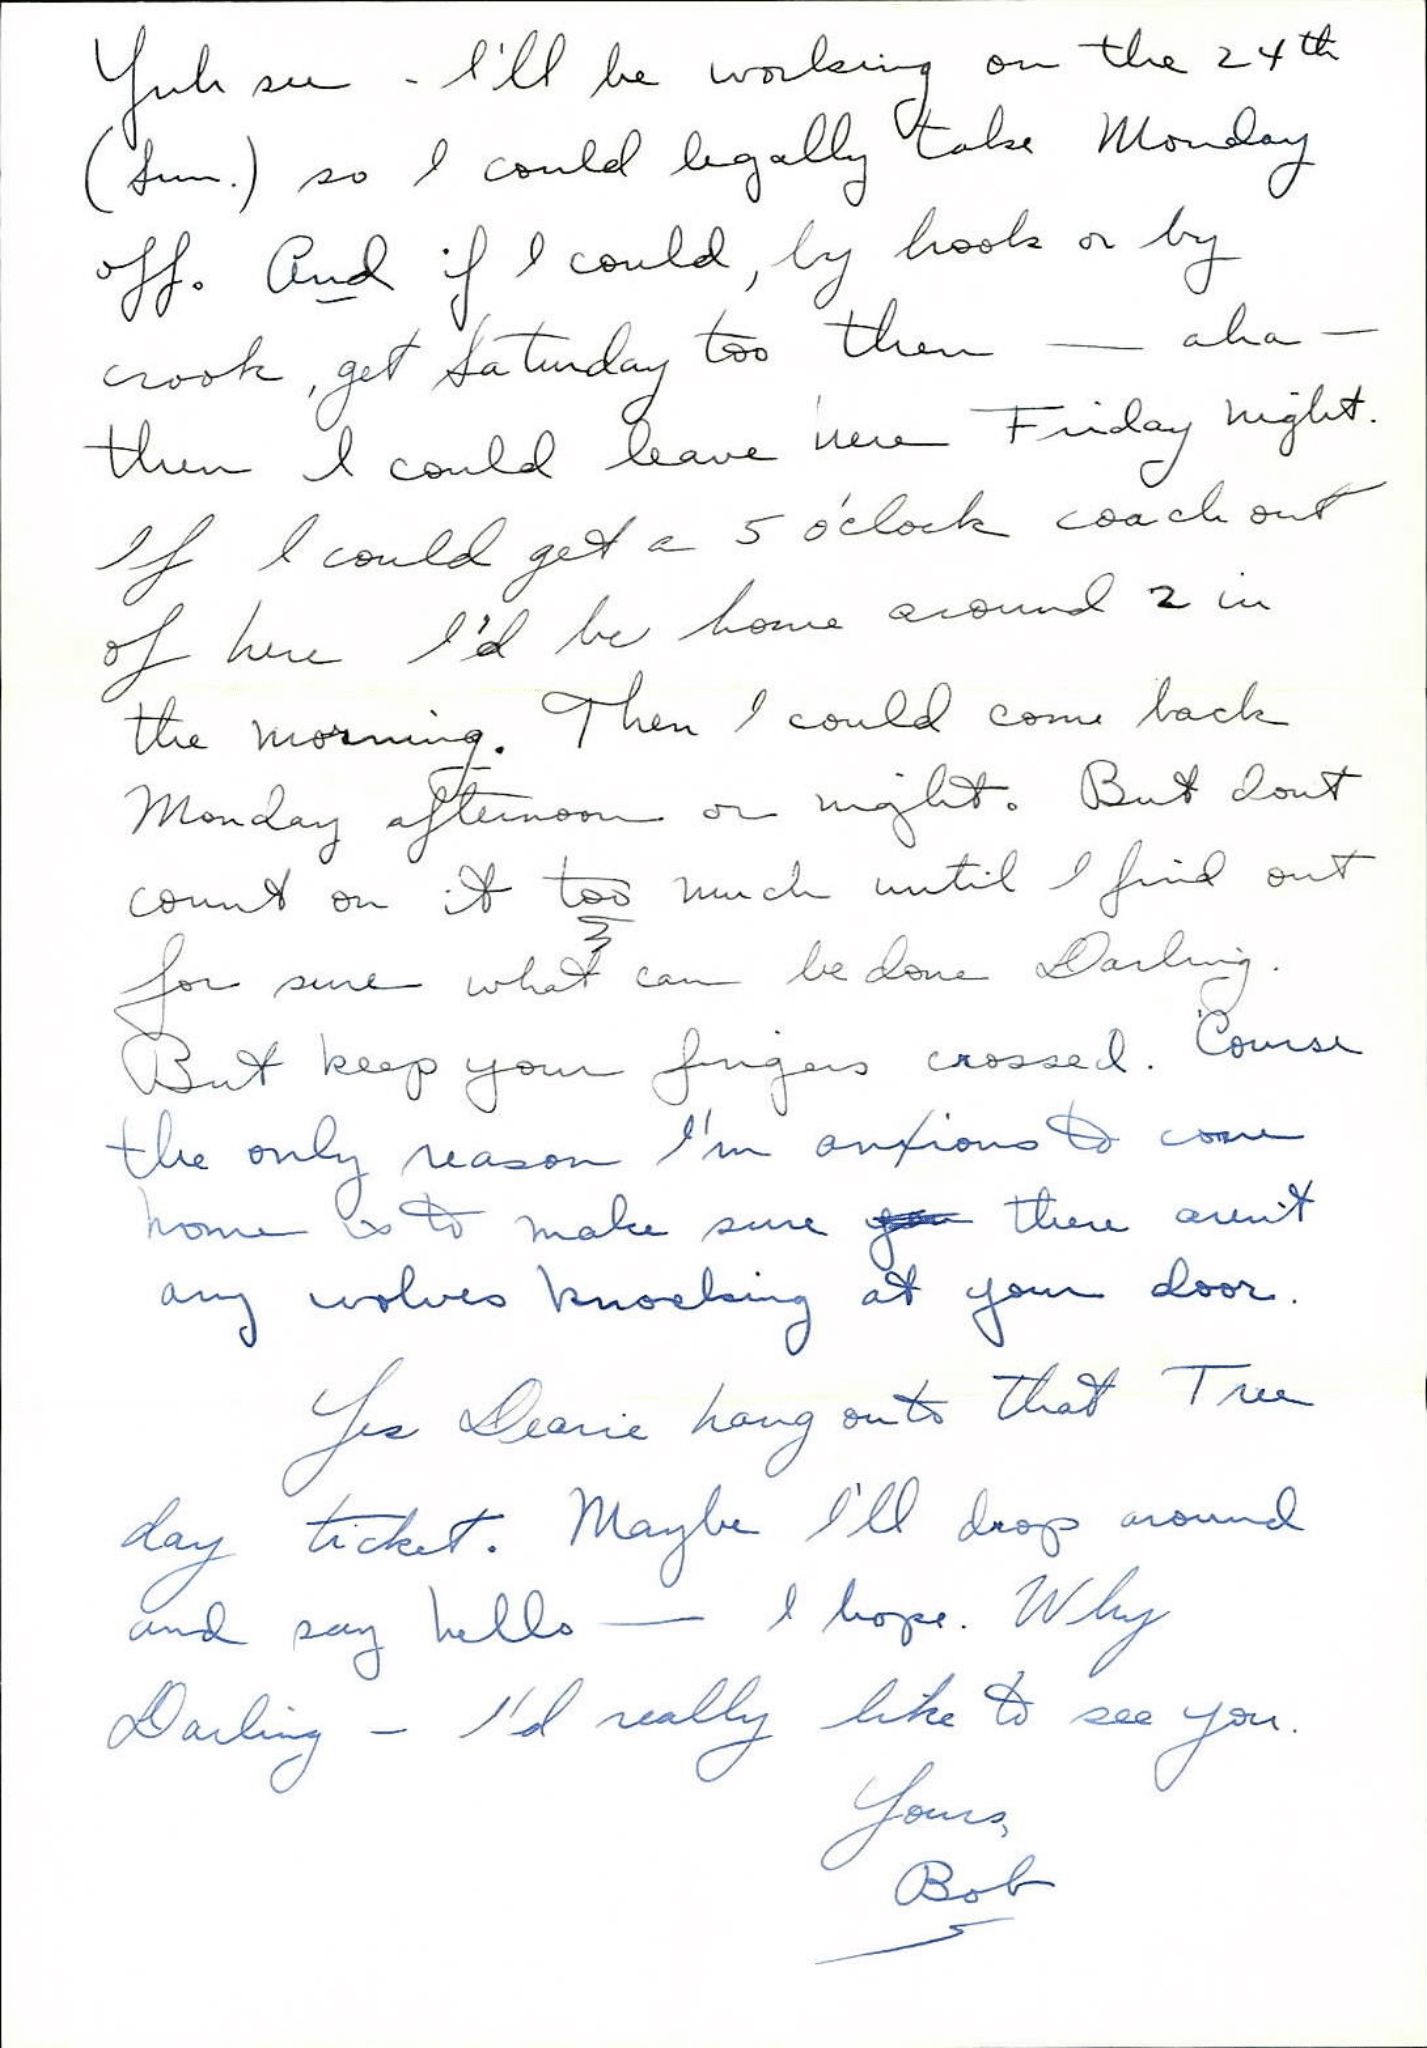 Yuh see - I'll be working on the 24th
(Sun.) so I could legally take Monday
off. And if I could, by hook or by
crook, get Saturday too then — aha —
then I could leave here Friday night.
If I could get a 5 o'clock coach out
of here I'd be home around 2 in
the morning. Then I could come back
Monday afternoon or night. But dont
count on it too much until I find out
for sure what can be done Darling.
But keep your fingers crossed. 'Course
the only reason I'm anxious to come
home is to make sure you there aren't
any wolves knocking at your door.
Yes Dearie hang onto that Tree
day ticket. Maybe I'll drop around
and say hello — I hope. Why
Darling - I'd really like to see you.
Yours,
Bob